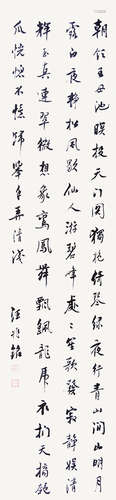 朝飲王母池暝投天門関獨抱綺琴綠夜行青山間山明月
露白夜靜松風歇仙人游碧峯處處笙歌發寂靜娛清
輝玉真連翠微想象鸞鳳舞飄颻龍虎衣捫天摘匏
瓜恍惚不憶歸舉手弄清淺
汪兆銘